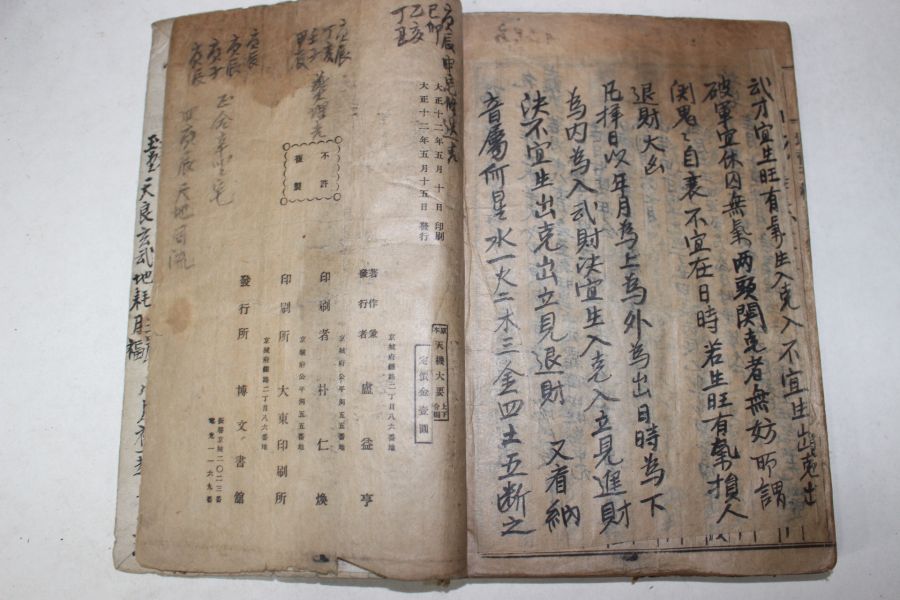 武才宜生旺有氣生入克入不宜生出克出
破軍宜休囚無氣两頭関克者無妨所謂
関鬼〻自衰不宜在日時若生旺有氣損人
退財大凶
凡擇日以年月為上為外為出日時為下
為内為入武財決宜生入克入立見進財
決不宜生出克出立見退財 又看納
音屬何星水一火二木三金四土五断之
庚辰
乙亥
大正十二年五月十日 印刷
大正十二年五月十五日 發行
不許
複製
原本 天機大要 上下合編
定價金壹圓
京城府鍾路二丁目八六番地
著作兼
發行者 盧益亨
京城府公平洞五五番地
印刷者 朴仁煥
京城府公平洞五五番地
印刷所 大東印刷所
京城府鍾路二丁目八六番地
發行所 博文書館
振替京城二〇二三番
電光一一六九番
壬辰
丁亥
壬子
甲辰
庚辰
庚辰
庚子
庚辰
天地
玄武地耗月
福